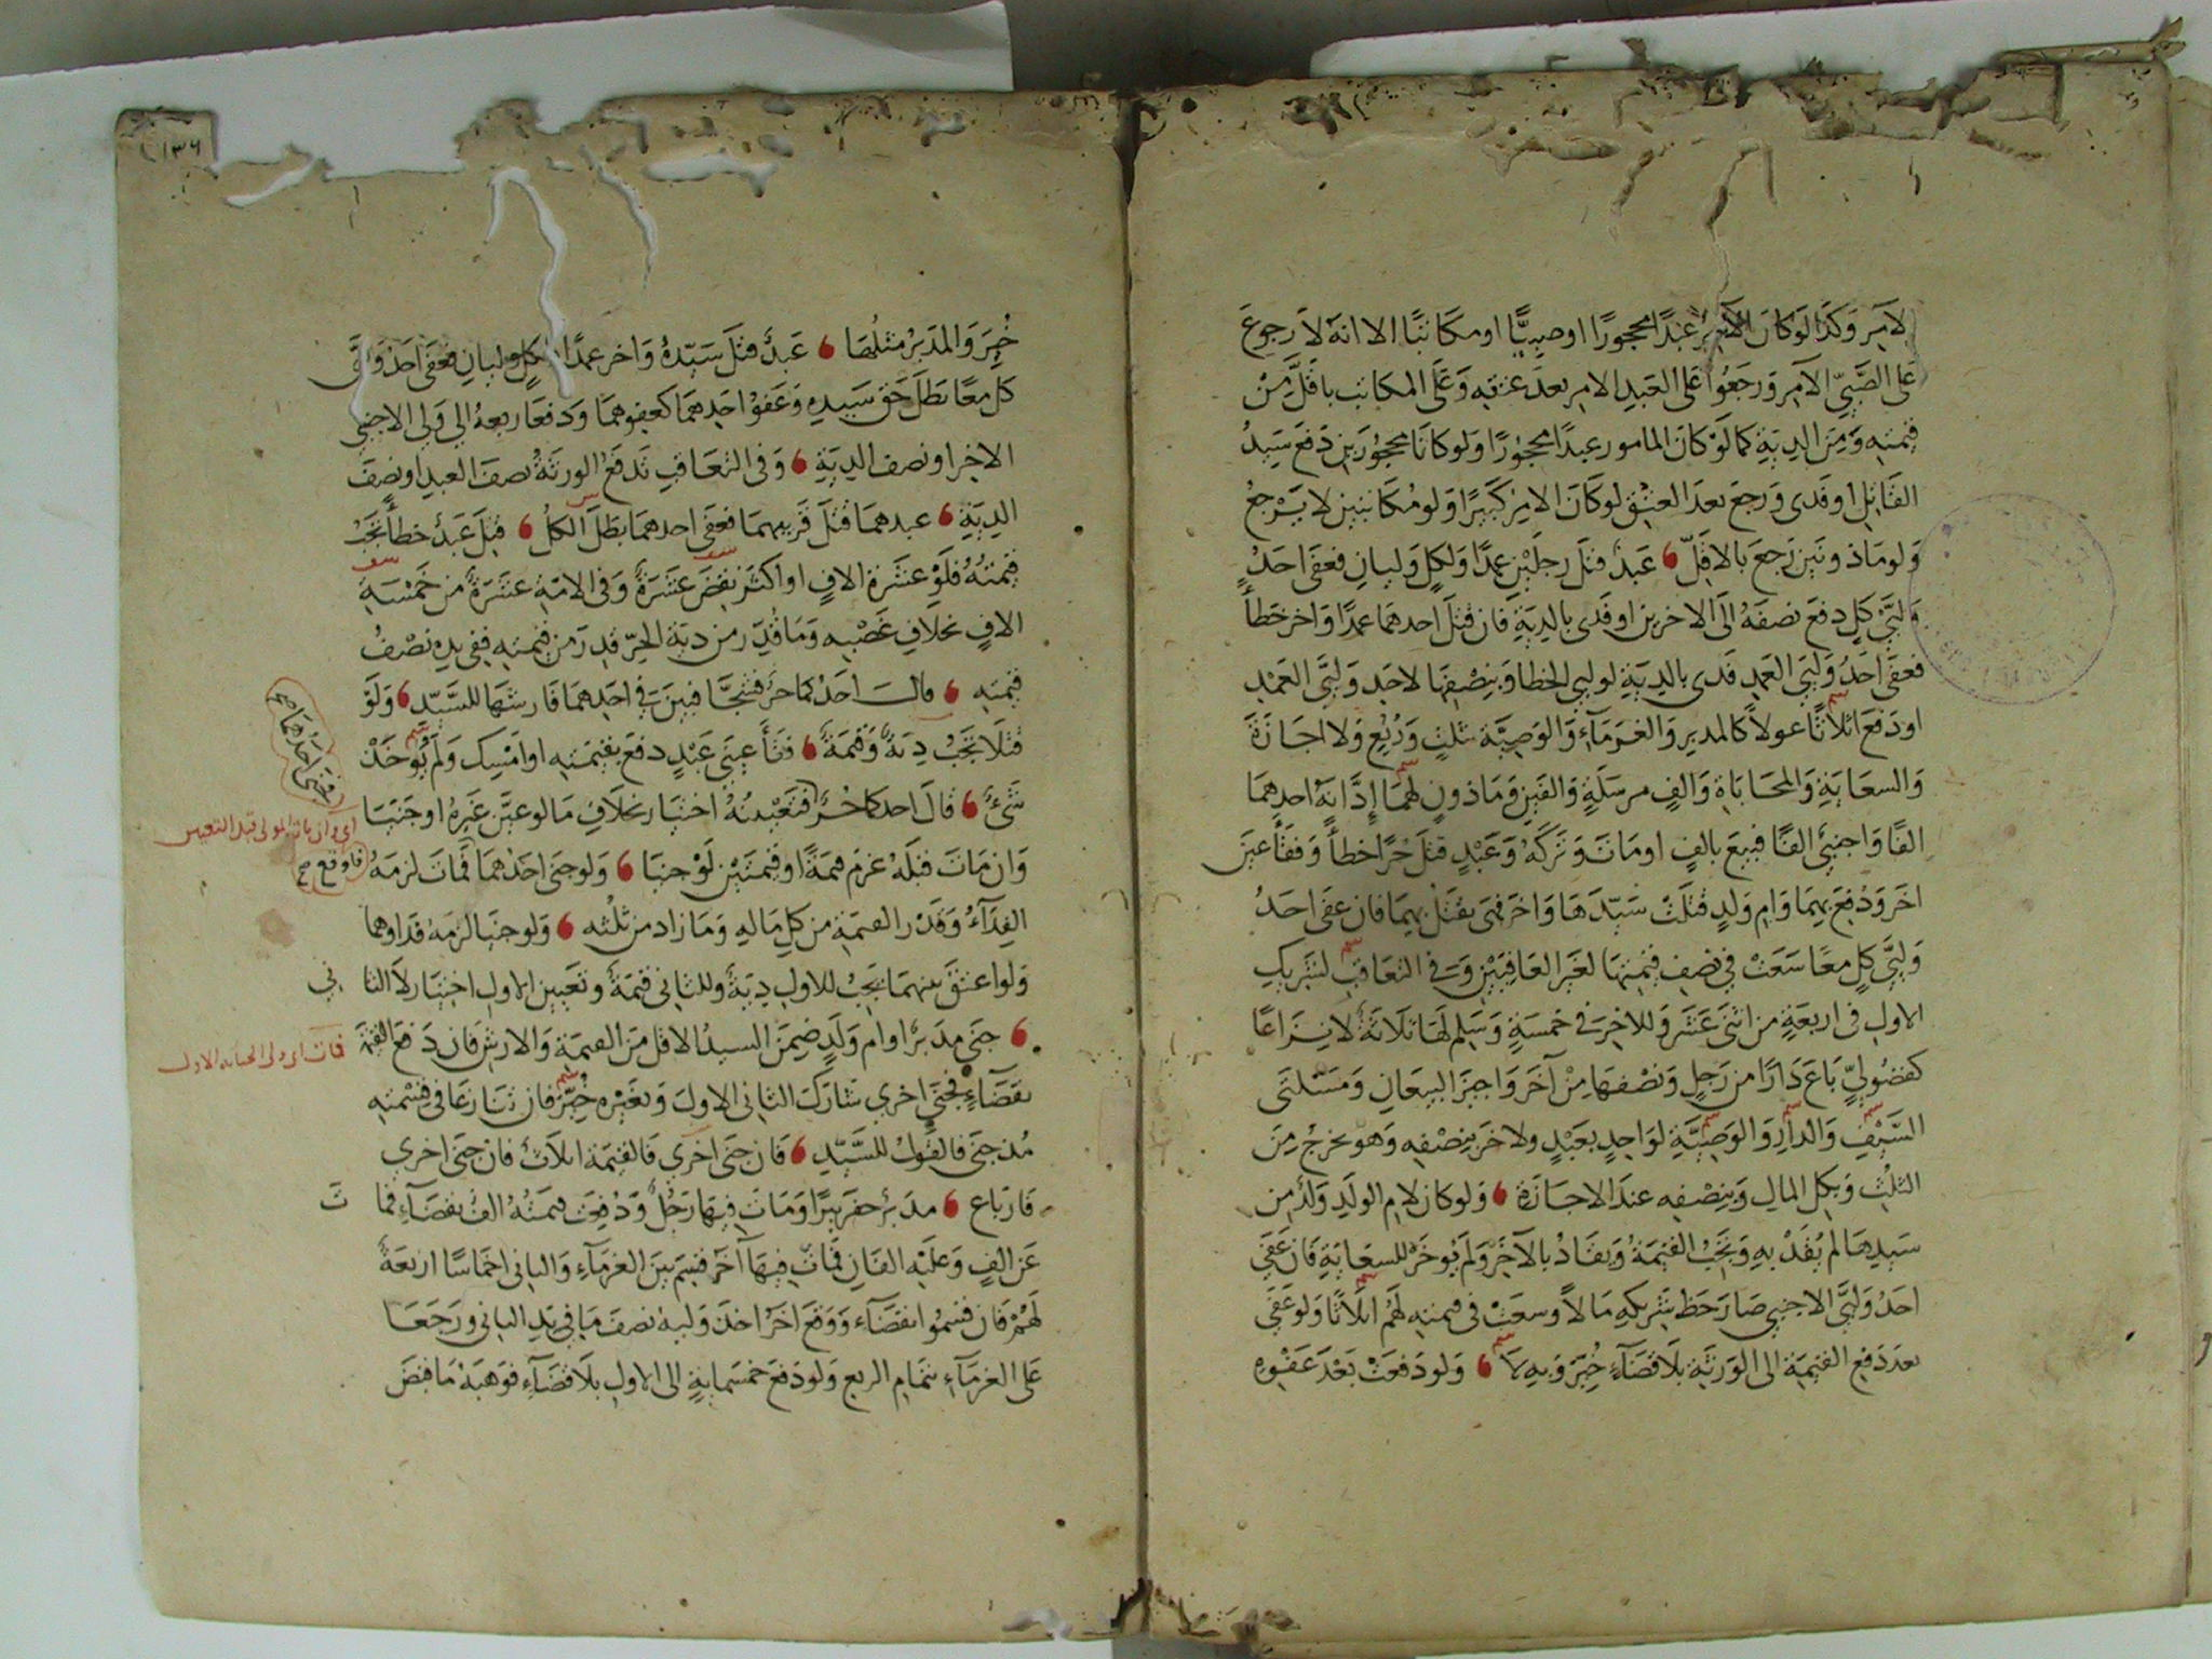 لامر وكذا لو كان الامر عبدا محجورا او صبيا او مكاتبا الا انه لا رجوع
على الصبي الآمر ورجعوا على العبد الامر بعد عتقه وعلى المكاتب باقل من
قيمته ومن الدية كما لو كان المامور عبدا محجورا ولو كانا محجورين دفع سيد
القاتل او فدى ورجع بعد العتق لو كان الامر كبيرا ولو مكاتبين لا يرجع
ولو ماذونين رجع بالاقل عبد قتل رجلين عمدا ولكل وليان فعفى احد
وليي كل دفع نصفه الى الاخرين او فدى بالدية فان قتل احدهما عمدا واخر خطأ
فعفى احد وليي العمد فدى بالدية لوليي الخطا وبنصفها لاحد وليي العمد
او دفع اثلاثا عولا كالمدبر والغرماء والوصية بثلث وربع ولا اجازة
والسعاية والمحاباة والف مرسلة والفين وماذون لهما إدّانه احدهما
الفا واجنبي الفا فبيع بالف او مات وتركه وعبد قتل حرا خطأ وفقأ عين
اخر ودفع بهما وام ولد قتلت سيدها واخر فهي بقتل بهما فان عفى احد
وليي كل معا سعت في نصف قيمتها لغير العافيين وفي التعاقب لشريك
الاول في اربعة من اثنى عشر وللاخر في خمسة وسلم لها ثلاثة لا نزاعا
كفضولي باع دارا من رجل ونصفها من آخر واجيز البيعان ومسئلتى
السيف والدار والوصية لواحد بعبد ولاخر بنصفه وهو يخرج من
الثلث وبكل المال وبنصفه عند الاجازة ولو كان لام الولد ولد من
سيدها لم يقد به وتجب القيمة ويقاد بالآخر ولم يوخر للسعاية فان عفى
احد وليي الاجنبي صار حظ شريكه مالا وسعت في قيمته لهم اثلاثا ولو عفى
بعد دفع القيمة الى الورثة بلا قضاء خير وبه لا ولو دفعت بعد عفوه
خير والمدبر مثلها عبد قتل سيده واخر عمدا لكل وليان فعفى احد ولى
كل معا بطل حق سيده وعفو احدهما كعفوهما ودفعا ربعه الي ولى الاجنبي
الاخر او نصف الدية وفي التعاقب تدفع الورثة نصف العبد او نصف
الدية عبدهما قتل قريبهما فعفى احدهما بطل الكل قتل عبد خطأ تجب
قيمته فلو عشرة الاف او اكثر نقص عشرة وفي الامة عشرة من خمسة
الاف بخلاف غصبه وما قدر من دية الحر قدر من قيمته ففي يده نصف
قيمته قال احدكما حر فشجا فبين في احدهما فارشها للسيد ولو
قتلا تجب دية وقيمة فقأ عيني عبد دفع بقيمته او امسك ولم يوخذ
شيء قال احدكما حر فتعيينه اختيار بخلاف ما لو عين غيره او جنيا
وان مات قبله غرم قيمة او قيمتين لو جنيا ولو جنى احدهما فمات لزمه
الفداء وقدر القيمة من كل ماله وما زاد من ثلثه ولو جنيا لزمه فداوهما
ولو اعتق بينهما تجب للاول دية وللثاني قيمة وتعيين الاول اختيار لا الثا ني
جنى مدبر او ام ولد ضمن السيد الاقل من القيمة والارش فان دفع القيمة
بقضاء فجنى اخرى شارك الثاني الاول وبغيره خير فان تنازعا في قيمته
مذ جنى فالقول للسيد فان جنى اخرى فالقيمة اثلاث فان جنى اخرى
فارباع مدبر حفر بيرا ومات فيها رجل ودفعت قيمته الف بقضاء فما ت
عن الف وعليه الفان فمات فيها آخر قسم بين الغرماء والثاني اخماسا اربعة
لهم فان قسموا بقضاء ووقع اخر اخذ وليه نصف ما في يد الثاني ورجعا
على الغرماء بتمام الربع ولو دفع خمسماية الى الاول بلا قضاء فوهبه ما قبض
فجنى احدهما صح
اي وان مات المولى قبل التعيين